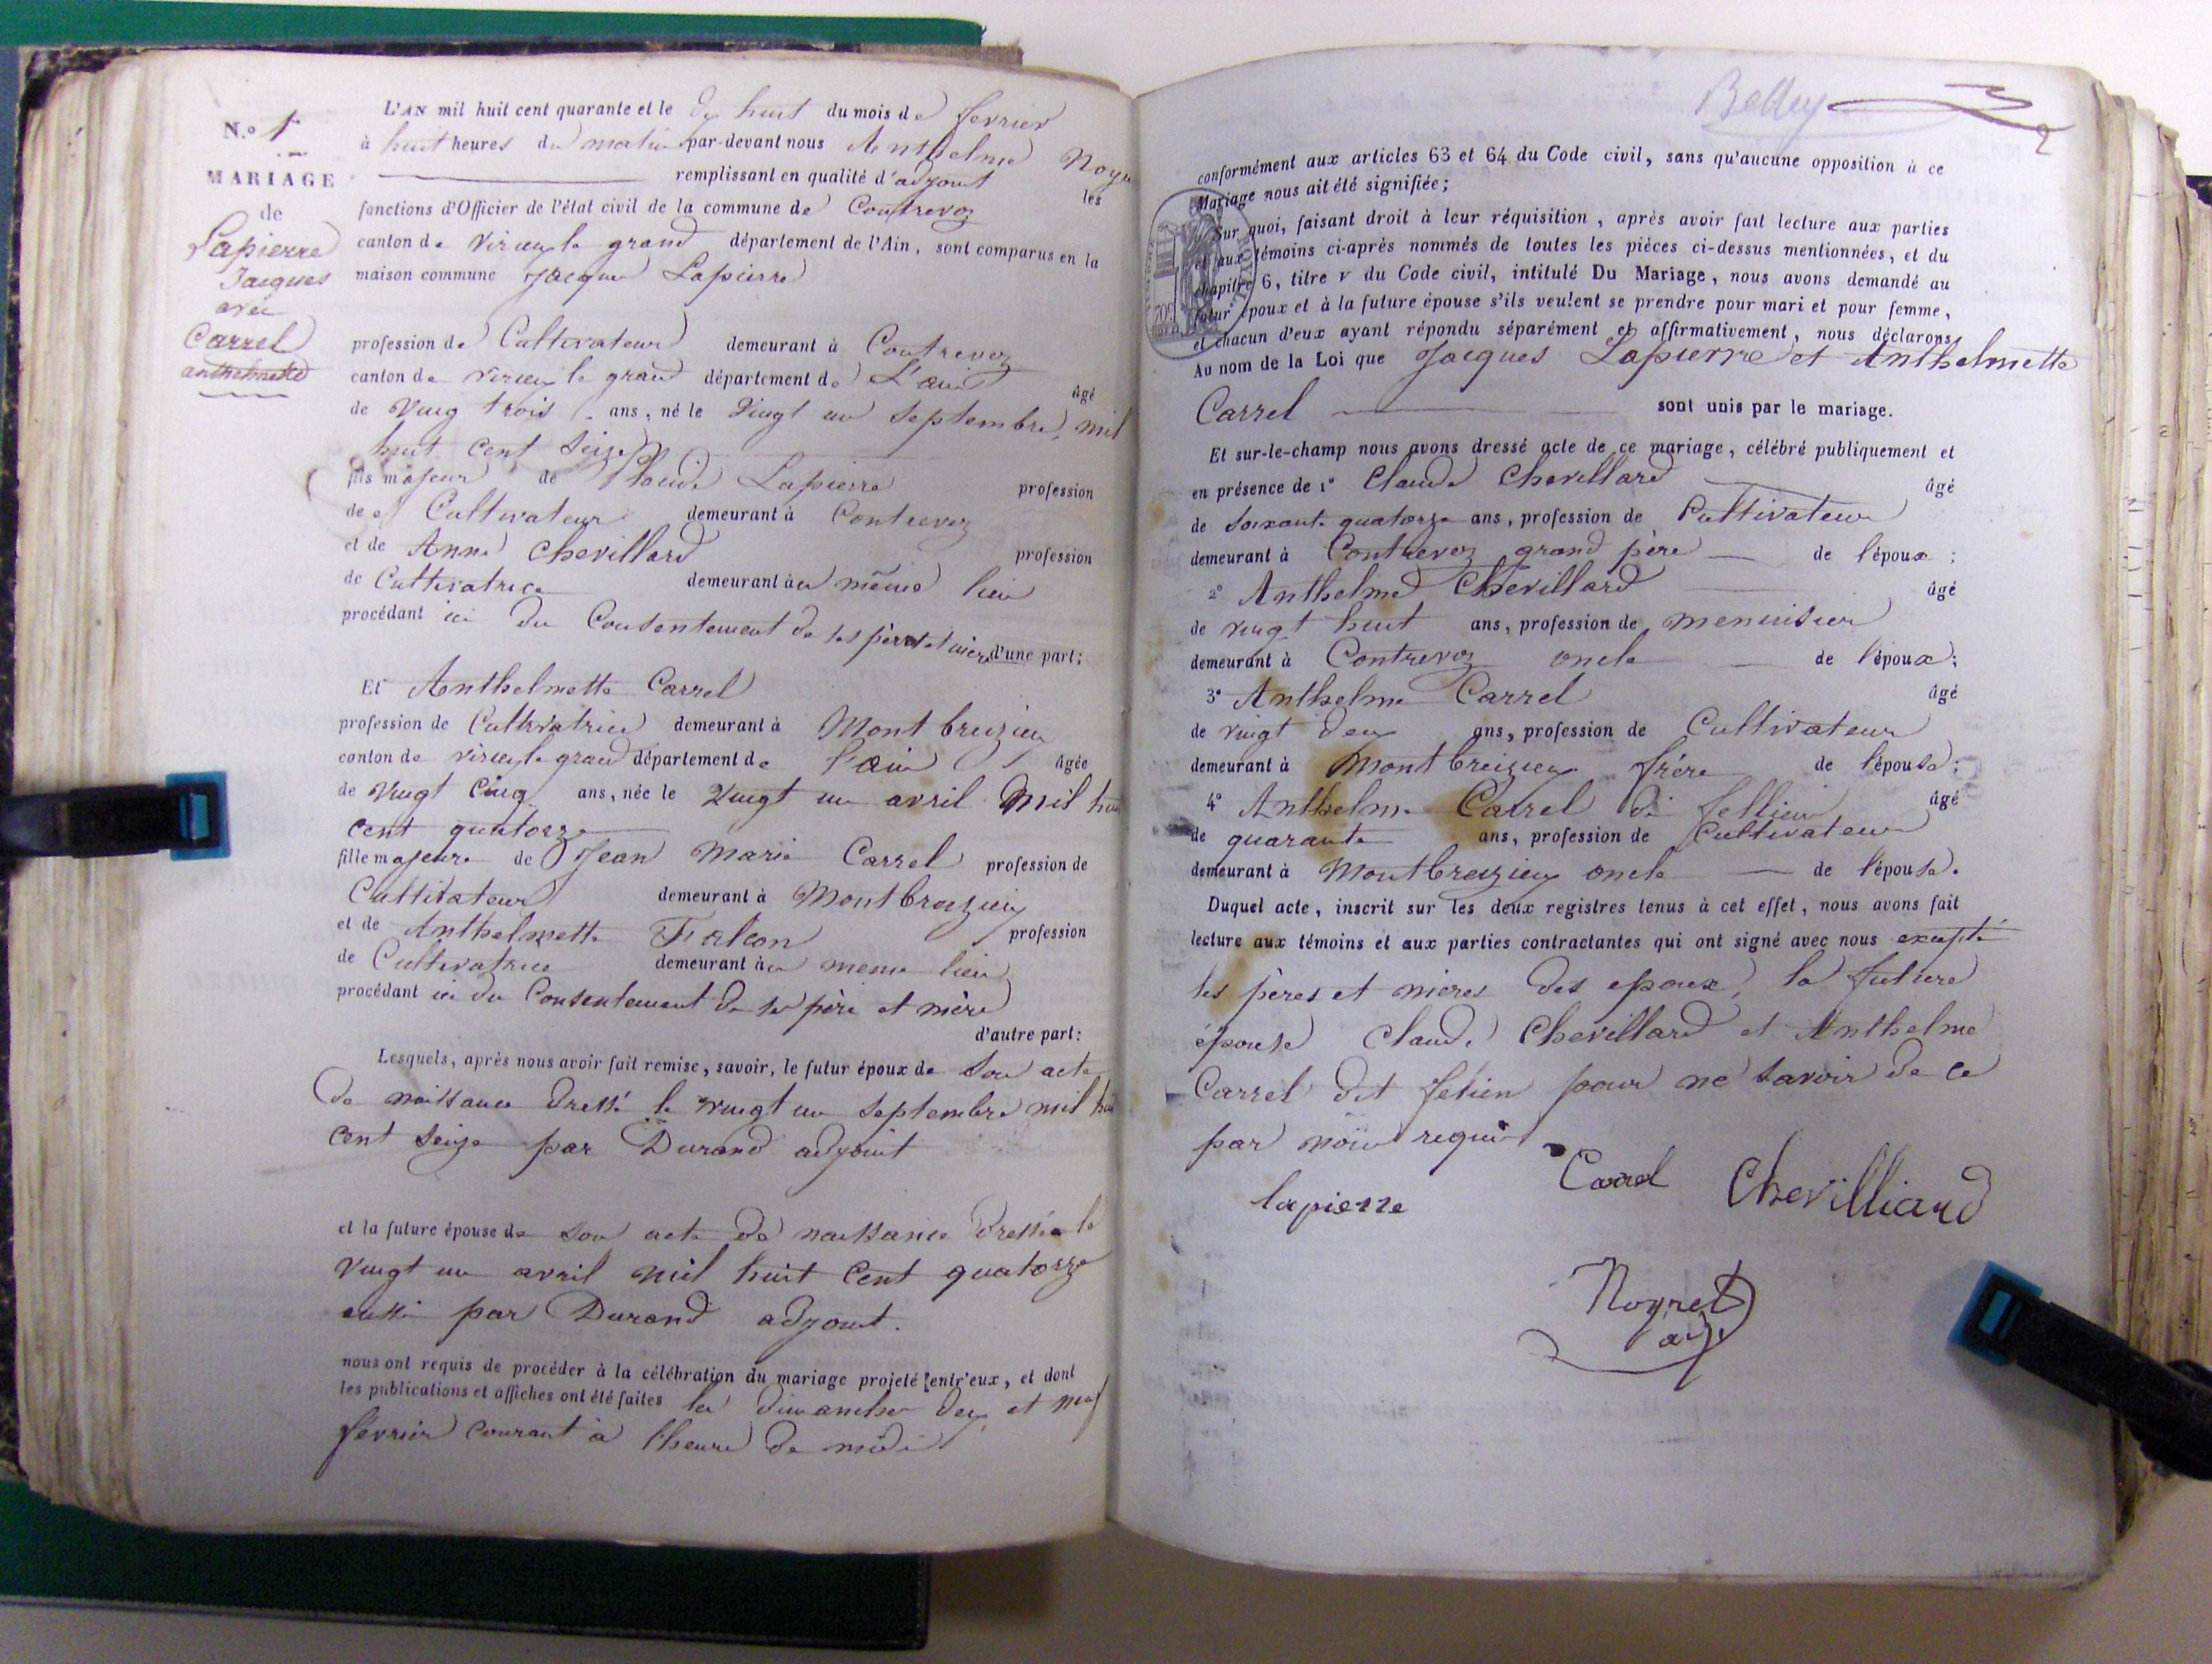 N.o 1
MARIAGE
de
Lapierre
Jacques
avec
Carrel
anthelmette
L'AN mil huit cent quarante et le dix huit du mois de fevrier
à huit heures du matin par-devant nous Anthelme Noyre
remplissant en qualité d'adjoint les
fonctions d'Officier de l'état civil de la commune de Contrevoz
canton de Virieu le grand département de l'Ain, sont comparus en la
maison commune Jacque Lapierre
profession de Cultivateur demeurant à Contrevoz
canton de virieu le grand département de L'ain âgé
de Ving trois ans, né le Vingt un Septembre mil
huit cent Seize
fils majeur de Claude Lapierre profession
de Cultivateur demeurant à Contrevoz
et de Anne Chevillard profession
de Cultivatrice demeurant au même lieu
procédant ici du Consentement de ses père et mère d'une part;
Et Anthelmette Carrel
profession de Cultivatrice demeurant à Montbreizieu
canton de virieu le grand département de l'ain âgée
de Vingt Cinq ans, née le Vingt un avril Mil huit
cent quatorze
fille majeure de Jean Marie Carrel profession de
Cultivateur demeurant à Montbreizieu
et de Anthelmette Falcon profession
de Cultivatrice demeurant au meme lieu
procédant ici du Consentement de ses père et mère
d'autre part:
Lesquels, après nous avoir fait remise, savoir, le futur époux de Son acte
de naissance dressé le vingt un Septembre mil huit
Cent seize par Durand adjoint
et la future épouse de son acte de naissance dressée le
vingt un avril mil huit Cent quatorze
aussi par Durand adjoint.
nous ont requis de procéder à la célébration du mariage projeté entr'eux, et dont
les publications et affiches ont été faites les dimanches deux et neuf
fevrier Courant à l'heure de midi
Belley
2
conformément aux articles 63 et 64 du Code civil, sans qu'aucune opposition à ce
Mariage nous ait été signifiée;
Sur quoi, faisant droit à leur réquisition, après avoir fait lecture aux parties
et aux témoins ci-après nommés de toutes les pièces ci-dessus mentionnées, et du
chapitre 6, titre v du Code civil, intitulé Du Mariage, nous avons demandé au
futur époux et à la future épouse s'ils veulent se prendre pour mari et pour femme,
et chacun d'eux ayant répondu séparément et affirmativement, nous déclarons
Au nom de la Loi que Jacques Lapierre et Anthelmette
Carrel sont unis par le mariage.
Et sur-le-champ nous avons dressé acte de ce mariage, célébré publiquement et
en présence de 1° Claude Chevillard âgé
de Soixante quatorze ans, profession de Cultivateur
demeurant à Contrevoz grand père de l'époux;
2° Anthelme Chevillard âgé
de vingt huit ans, profession de menuisier
demeurant à Contrevoz oncle de l'époux;
3° Anthelme Carrel âgé
de vingt deux ans, profession de Cultivateur
demeurant à Montbreizieu frère de l'épouse;
4° Anthelme Carrel dit fellien âgé
de quarante ans, profession de Cultivateur
demeurant à Montbreizieu oncle de l'épouse.
Duquel acte, inscrit sur les deux registres tenus à cet effet, nous avons fait
lecture aux témoins et aux parties contractantes qui ont signé avec nous excepté
les pères et mères des epoux, la future
épouse Claude Chevillard et Anthelme
Carrel dit felien pour ne savoir de ce
par nous requis
lapierre Carrel Chevilliard
Noyret
adj